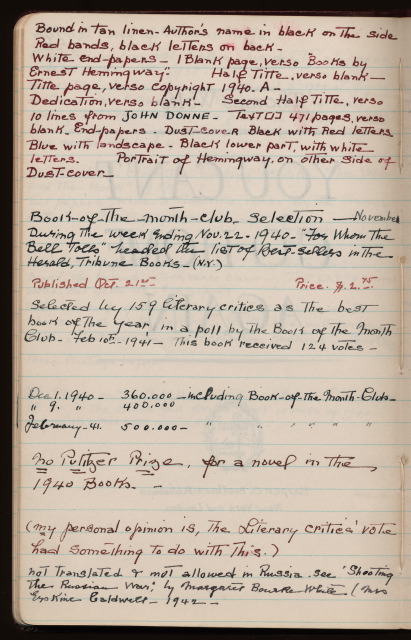 Bound in tan linen - Author's name in black on the side
Red bands, black letters on back -
White end-papers - 1 Blank page, verso "Books by
Ernest Hemingway". Half Title, verso blank -
Title page, verso copyright 1940. A -
Dedication, verso blank - Second Half Title, verso
10 lines from JOHN DONNE. - Text [1] 471 pages, verso
blank. End-papers - Dust-cover Black with Red letters
Blue with landscape - Black lower part, with white
letters. Portrait of Hemingway, on other side of
Dust-cover -
Book-of-the month-club. Selection - November
During the week ending Nov. 22 - 1940 - "For Whom the
Bell Tolls" headed the list of Best-sellers in the
Herald, Tribune Books - (N.Y.)
Published Oct. 21st Price. $. 2.75
Selected by 159 literary critics as the best
book of the year, in a poll by the Book of the Month
Club - Feb 10th - 1941 - This book received 124 votes -
Dec 1. 1940 - 360.000 - including Book-of-the Month-Club -
" 9. " 400.000
February - 41. 500.000 - " " " " "
No Pulitzer Prize, for a novel in the
1940 Books. -
(my personal opinion is, the Literary critics' vote
had something to do with this.)
not translated & not allowed in Russia. see "Shooting
the Russian War," by Margaret Bourke-White (Mrs
Erskine Caldwell - 1942 -